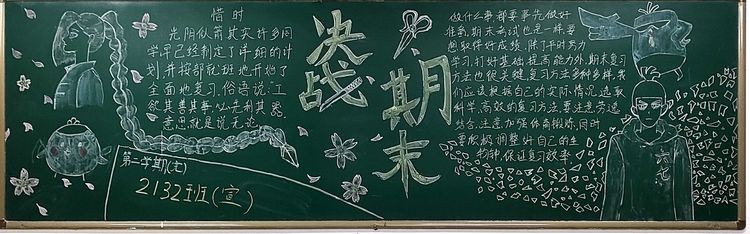 惜时
光阴似箭其实许多同
学早已经制定了详细的计
划,并按部就班地开始了
全面地复习,俗语说:工
欲其善其事,必先利其器.
意思就是说无论
第二学期(七)
2132班班(宣)
决战
期末
做什么事都要事先做好
准备,期末考试也是一样,要
想取得好成绩,除了平时努力
学习,打好基础,提高能力外,期末复习
方法也很关键,复习方法多种多样,我
们应该根据自己的实际情况,选取
科学、高效的复习方法,要注意劳逸
结合,注意加强体育锻炼,同时
要积极调整好自己的生
物钟,保证复习效率
六七